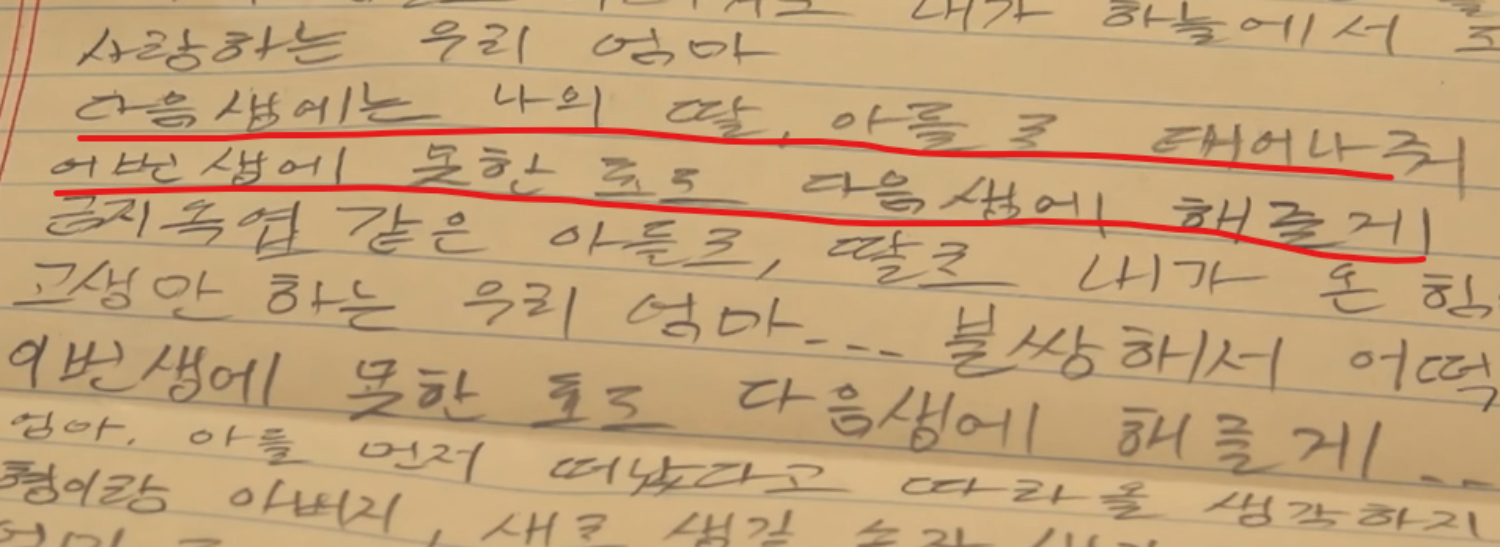 내가 하늘에서
사랑하는 우리 엄마
다음 생에는 나의 딸, 아들로 태어나줘
이번 생에 못한 효도 다음 생에 해줄게
금지옥엽 같은 아들로, 딸로 내가 온 힘
고생만 하는 우리 엄마... 불쌍해서 어떡
이번 생에 못한 효도 다음 생에 해줄게...
엄마, 아들 먼저 떠났다고 따라올 생각하지
형이랑 아버지, 새로 생길